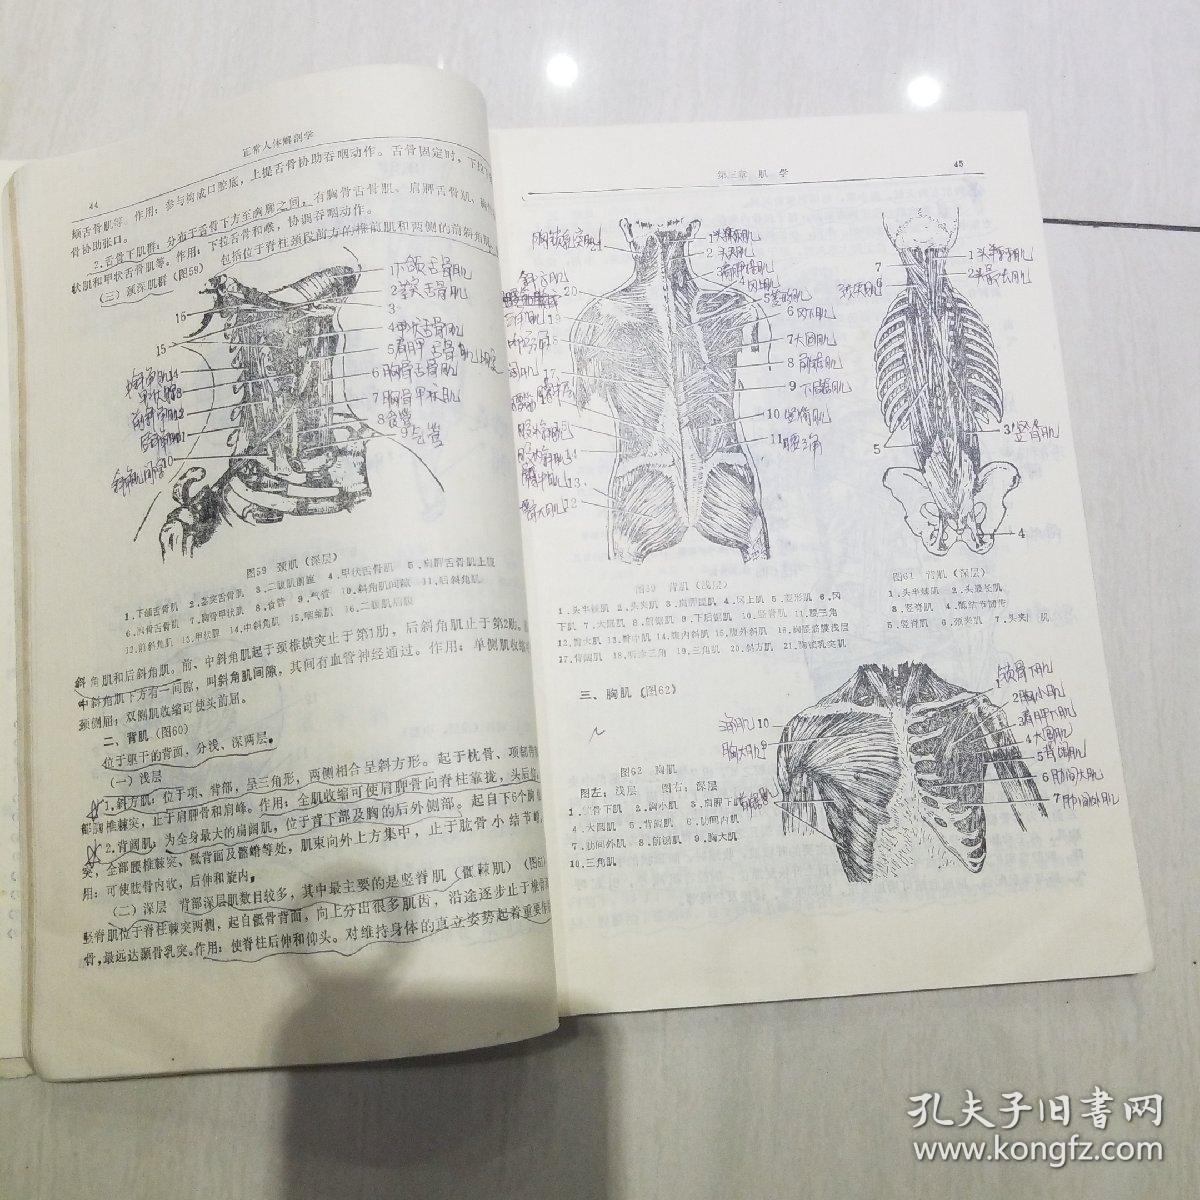 44
正常人体解剖学
颏舌骨肌等。作用：参与构成口腔底，上提舌骨协助吞咽动作。舌骨固定时，下拉下
骨协助张口。
2.舌骨下肌群：分布于舌骨下方至胸廓之间，有胸骨舌骨肌、肩胛舌骨肌、
状肌和甲状舌骨肌等。作用：下拉舌骨和喉，协调吞咽动作。
(三) 颈深肌群 (图59) 包括位于脊柱颈段前方的椎前肌和两侧的前斜角肌、
1下颌舌骨肌
2茎突舌骨肌
3
4甲状舌骨肌
5肩胛舌骨肌上腹
6胸骨舌骨肌
7胸骨甲状肌
8食管
9气管
16
15
10
图59 颈肌 (深层)
1.下颌舌骨肌 2.茎突舌骨肌 3.二腹肌前腹 4.甲状舌骨肌 5.肩胛舌骨肌上腹
6.胸骨舌骨肌 7.胸骨甲状肌 8.食管 9.气管 10.斜角肌间隙 11.后斜角肌
12.前斜角肌 13.甲状腺 14.中斜角肌 15.咽缩肌 16.二腹肌后腹
斜角肌和后斜角肌。前、中斜角肌起于颈椎横突止于第1肋，后斜角肌止于第2肋。
中斜角肌下方有一间隙，叫斜角肌间隙，其间有血管神经通过。作用：单侧肌收缩
颈侧屈；双侧肌收缩可使头前屈。
二、背肌 (图60)
位于躯干的背面，分浅、深两层。
(一) 浅层
1.斜方肌：位于项、背部，呈三角形，两侧相合呈斜方形。起于枕骨、项韧带
部胸椎棘突，止于肩胛骨和肩峰。作用：全肌收缩可使肩胛骨向脊柱靠拢，头后
2.背阔肌：为全身最大的扁阔肌，位于背下部及胸的后外侧部。起自下6个胸
突，全部腰椎棘突，骶背面及髂嵴等处，肌束向外上方集中，止于肱骨小结节嵴。
用：可使肱骨内收，后伸和旋内。
(二) 深层 背部深层肌数目较多，其中最主要的是竖脊肌 (骶棘肌) (图61
竖脊肌位于脊柱棘突两侧，起自骶骨背面，向上分出很多肌齿，沿途逐步止于椎骨
骨，最远达颞骨乳突。作用：使脊柱后伸和仰头。对维持身体的直立姿势起着重要作
第三章 肌 学
45
1头半棘肌
2头夹肌
4冈上肌
5菱形肌
6冈下肌
7大圆肌
8前锯肌
9下后锯肌
10竖脊肌
11腰三角
20
17
13
图59 背肌 (浅层)
1.头半棘肌 2.头夹肌 3.肩胛提肌 4.冈上肌 5.菱形肌 6.冈
下肌 7.大圆肌 8.前锯肌 9.下后锯肌 10.竖脊肌 11.腰三角
12.臀大肌 13.臀中肌 14.腹内斜肌 15.腹外斜肌 16.胸腰筋膜浅层
17.背阔肌 18.听诊三角 19.三角肌 20.斜方肌 21.胸锁乳突肌
1头半棘肌
2头最长肌
7
颈夹肌6
3竖脊肌
5
4
图61 背肌 (深层)
1.头半棘肌 2.头最长肌
3.竖脊肌 4.骶结节韧带
5.竖脊肌 6.颈夹肌 7.头夹 肌
三、胸肌 (图62)
1
锁骨下肌
2胸小肌
3肩胛下肌
4大圆肌
5背阔肌
6肋间内肌
7肋间外肌
三角肌 10
胸大肌9
前锯肌8
图62 胸肌
图左：浅层 图右：深层
1.锁骨下肌 2.胸小肌 3.肩胛下肌
4.大圆肌 5.背阔肌 6.肋间内肌
7.肋间外肌 8.前锯肌 9.胸大肌
10.三角肌
孔夫子旧书网
www.kongfz.com